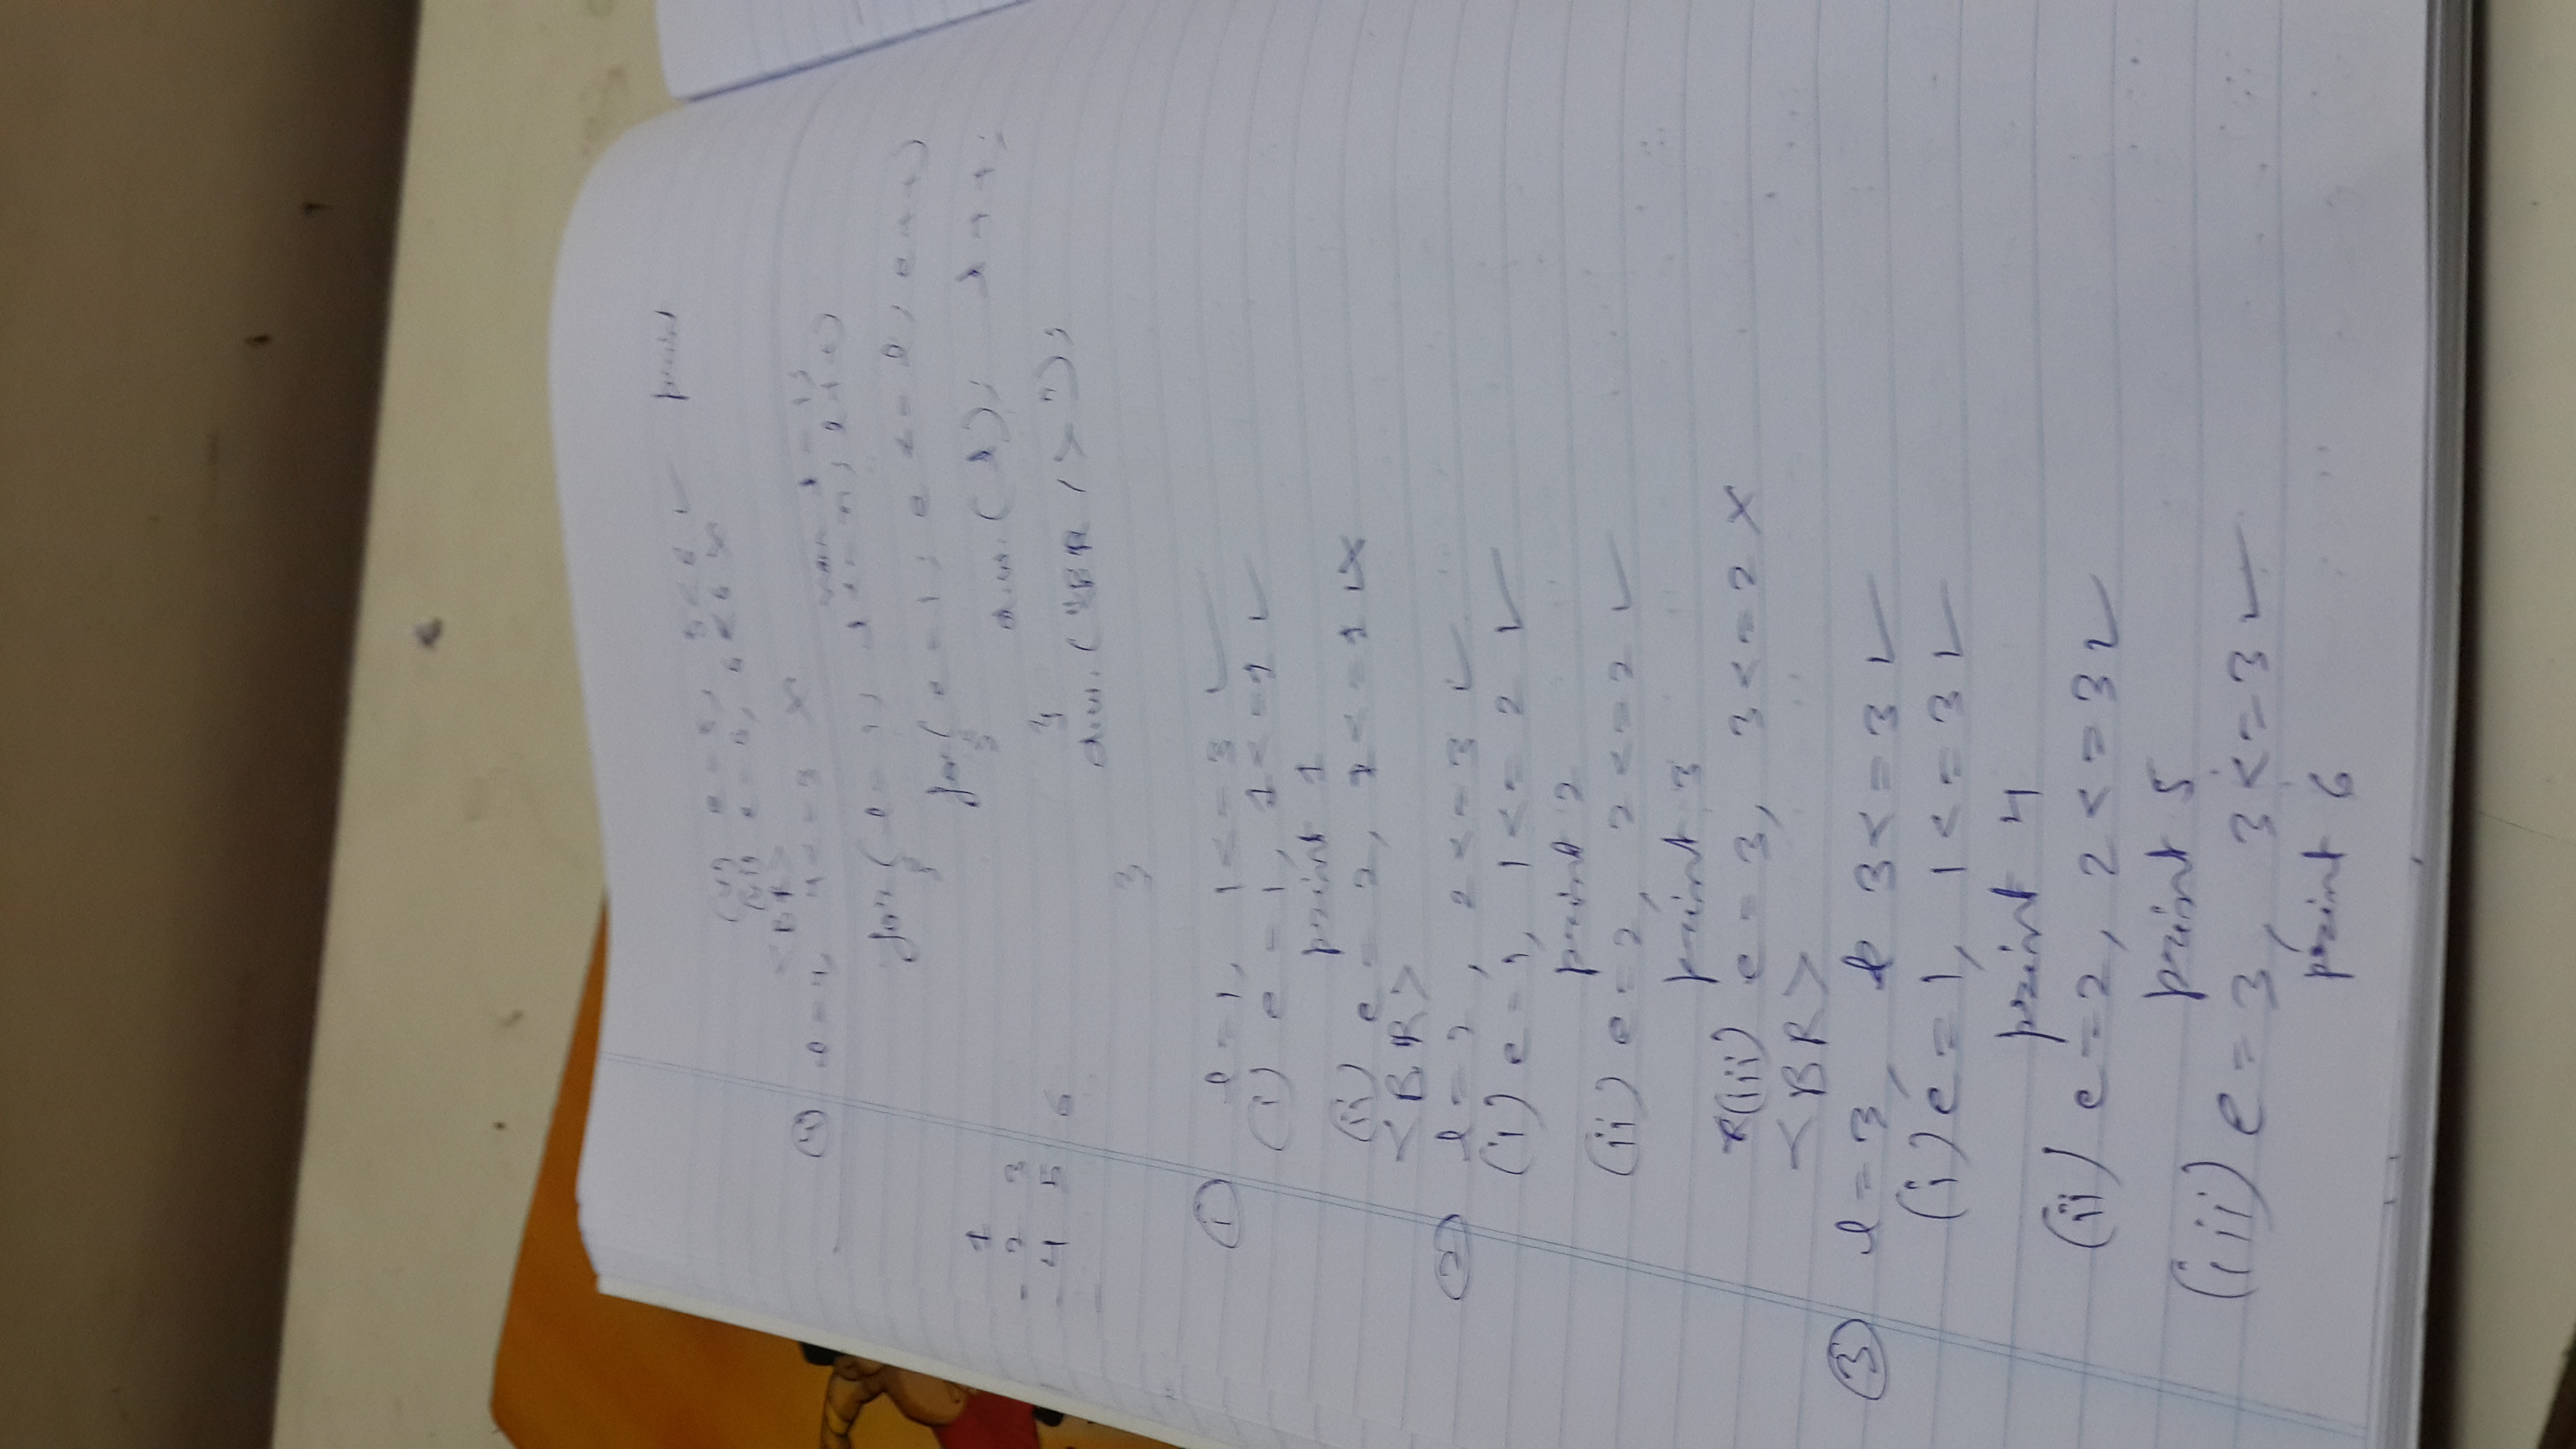 (v) e = 5, 5 < 6 ✓ print
(vi) e = 6, 6 < 6 ×
<BR>
④ l = 4, 4 <= 3 ×
l = 1;
for ( l = 1; l <= n; l++)
{
for ( e = 1; e <= l; e++)
{
d.w. ( l ); l++;
}
d.w. ("BR />");
}
1
2 3
4 5 6
① l = 1, 1 <= 3 ✓
(i) e = 1, 1 <= 1 ✓
print 1
(ii) e = 2, 2 <= 1 ×
<BR>
② l = 2, 2 <= 3 ✓
(i) e = 1, 1 <= 2 ✓
print 2
(ii) e = 2, 2 <= 2 ✓
print 3
(iii) e = 3, 3 <= 2 ×
<BR>
③ l = 3, 3 <= 3 ✓
(i) e = 1, 1 <= 3 ✓
print 4
(ii) e = 2, 2 <= 3 ✓
print 5
(iii) e = 3, 3 <= 3 ✓
print 6